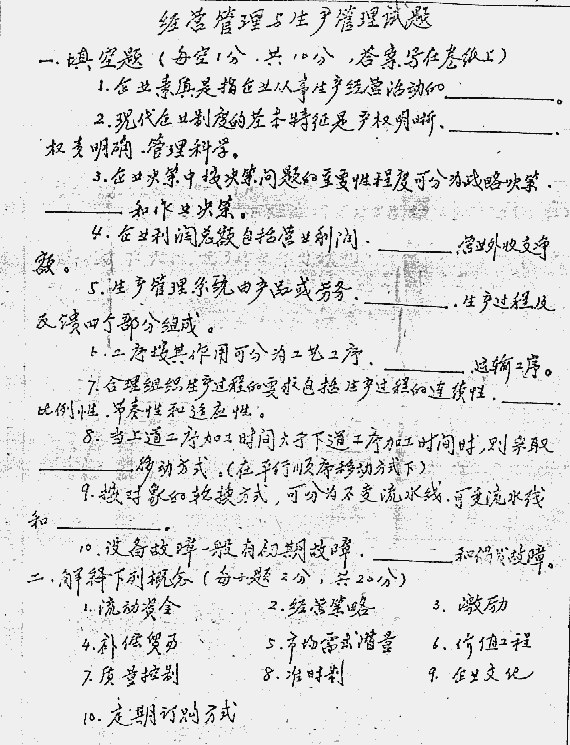 经营管理与生产管理试题
一、填空题（每空1分，共10分，答案写在卷纸上）
1.企业素质是指企业从事生产经营活动的________。
2.现代企业制度的基本特征是产权明晰、________、
权责明确、管理科学。
3.企业决策中按决策问题的重要性程度可分为战略决策、
________和作业决策。
4.企业利润总额包括营业利润、________、营业外收支净
额。
5.生产管理系统由产品或劳务、________、生产过程及
反馈四个部分组成。
6.工序按其作用可分为工艺工序、________、运输工序。
7.合理组织生产过程的要求包括生产过程的连续性、________、
比例性、节奏性和适应性。
8.当上道工序加工时间大于下道工序加工时间时，则采取
________移动方式。（在平行顺序移动方式下）
9.按对象的轮换方式，可分为不变流水线、可变流水线
和________。
10.设备故障一般有初期故障、________和偶发故障。
二、解释下列概念（每小题2分，共20分）
1.流动资金 2.经营策略 3.激励
4.补偿贸易 5.市场需求潜量 6.价值工程
7.质量控制 8.准时制 9.企业文化
10.定期订购方式